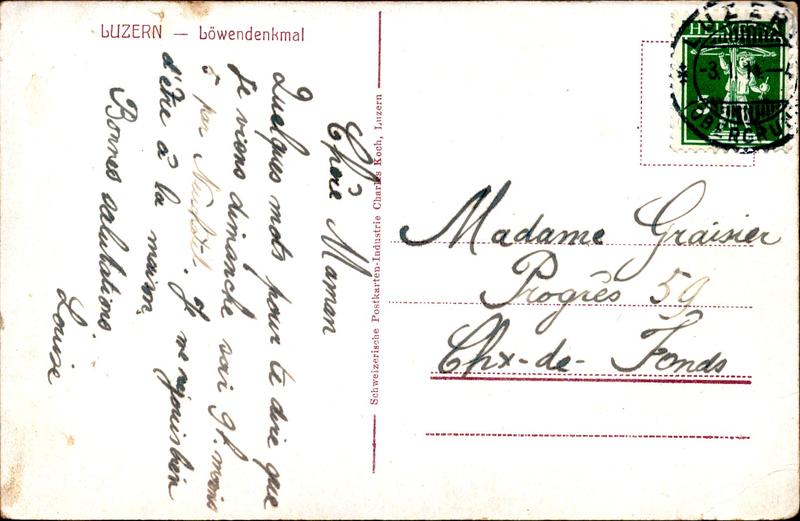 LUZERN — Löwendenkmal
Chère Maman
Quelques mots pour te dire que
je viens dimanche soir 9 h. moins
5 par Neuchâtel. Je me réjouis bien
d'être à la maison.
Bonnes salutations.
Louise
Schweizerische Postkarten-Industrie Charles Koch, Luzern
HELVETIA
LUZERN
-3.
Madame Graisier
Progrès 59
Chx-de-Fonds